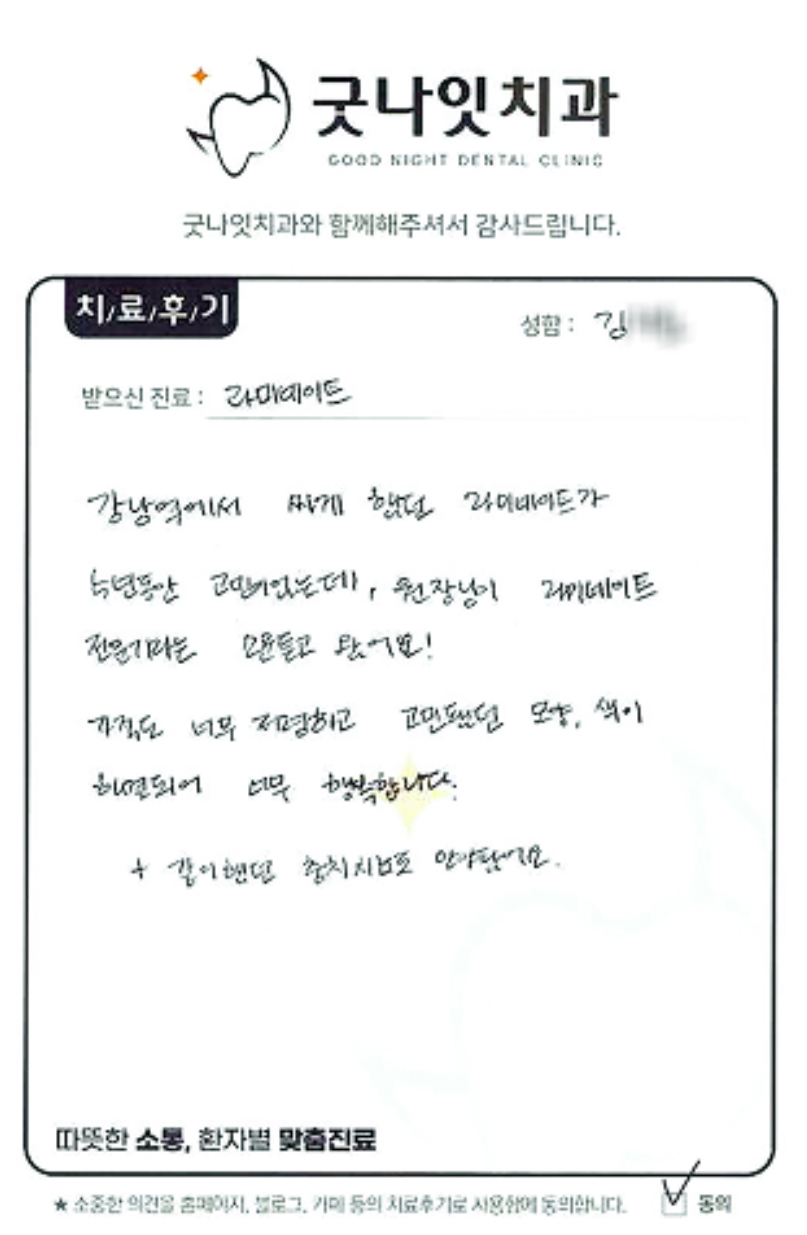 굿나잇치과
GOOD NIGHT DENTAL CLINIC
굿나잇치과와 함께해주셔서 감사드립니다.
치/료/후/기
성함 : 김
받으신 진료 : 라미네이트
강남역에서 싸게 했던 라미네이트가
수년동안 고민이었는데, 원장님이 라미네이트
전문가라는 소문듣고 왔어요!
가격도 너무 저렴하고 고민됐던 모양, 색이
해결되어 너무 행복합니다.
+ 같이했던 충치치료도 안아팠어요.
따뜻한 소통, 환자별 맞춤진료
★ 소중한 의견을 홈페이지, 블로그, 카페 등의 치료후기로 사용함에 동의합니다. 동의